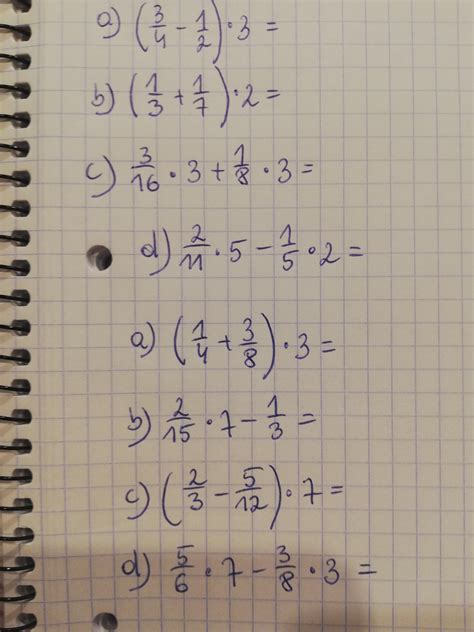 a) (3/4 - 1/2) · 3 =
b) (1/3 + 1/7) · 2 =
c) 3/16 · 3 + 1/8 · 3 =
d) 2/11 · 5 - 1/5 · 2 =
a) (1/4 + 3/8) · 3 =
b) 2/15 · 7 - 1/3 =
c) (2/3 - 5/12) · 7 =
d) 5/6 · 7 - 3/8 · 3 =